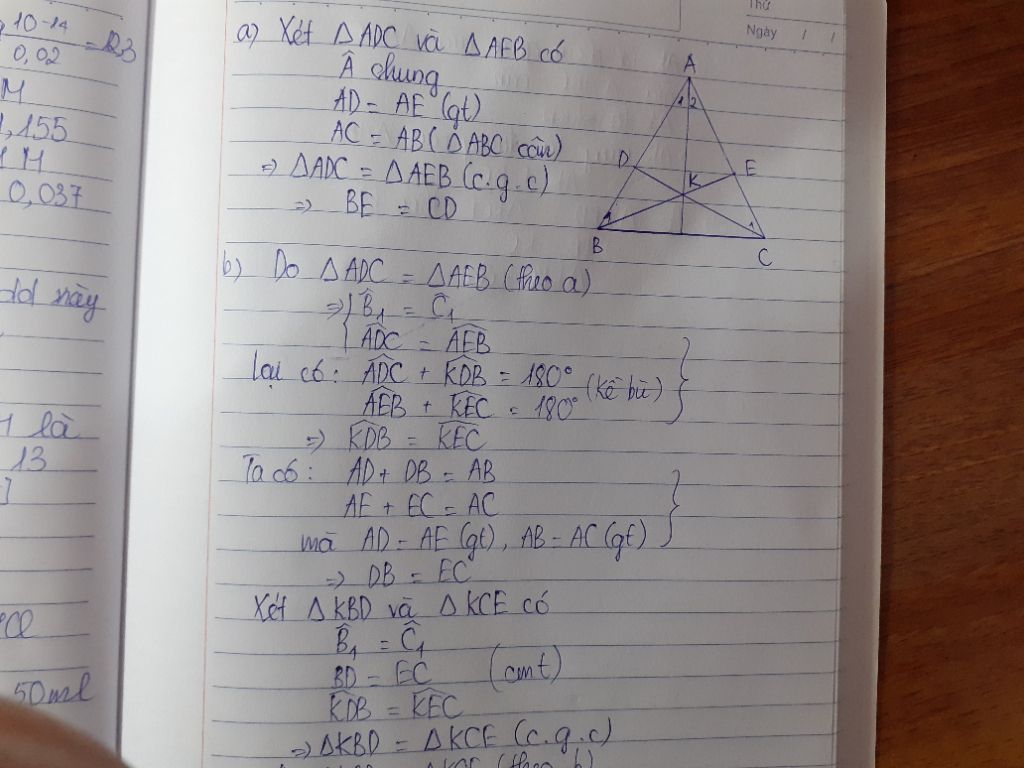 10⁻¹⁴
0,02
M
1,155
M
0,037
dd này
là
13
50ml
Thứ
Ngày / /
a) Xét △ADC và △AEB có
Â chung
AD = AE (gt)
AC = AB (△ABC cân)
⇒ △ADC = △AEB (c.g.c)
⇒ BE = CD
A
1 2
D
E
K
1
1
B
C
b) Do △ADC = △AEB (theo a)
⇒ { B̂₁ = Ĉ₁
ADC = AEB
Lại có: ADC + KDB = 180° (kề bù)
AEB + KEC = 180°
⇒ KDB = KEC
Ta có: AD + DB = AB
AE + EC = AC
mà AD = AE (gt), AB = AC (gt)
⇒ DB = EC
Xét △KBD và △KCE có
B̂₁ = Ĉ₁
BD = EC (cmt)
KDB = KEC
⇒ △KBD = △KCE (c.g.c)
(theo b)